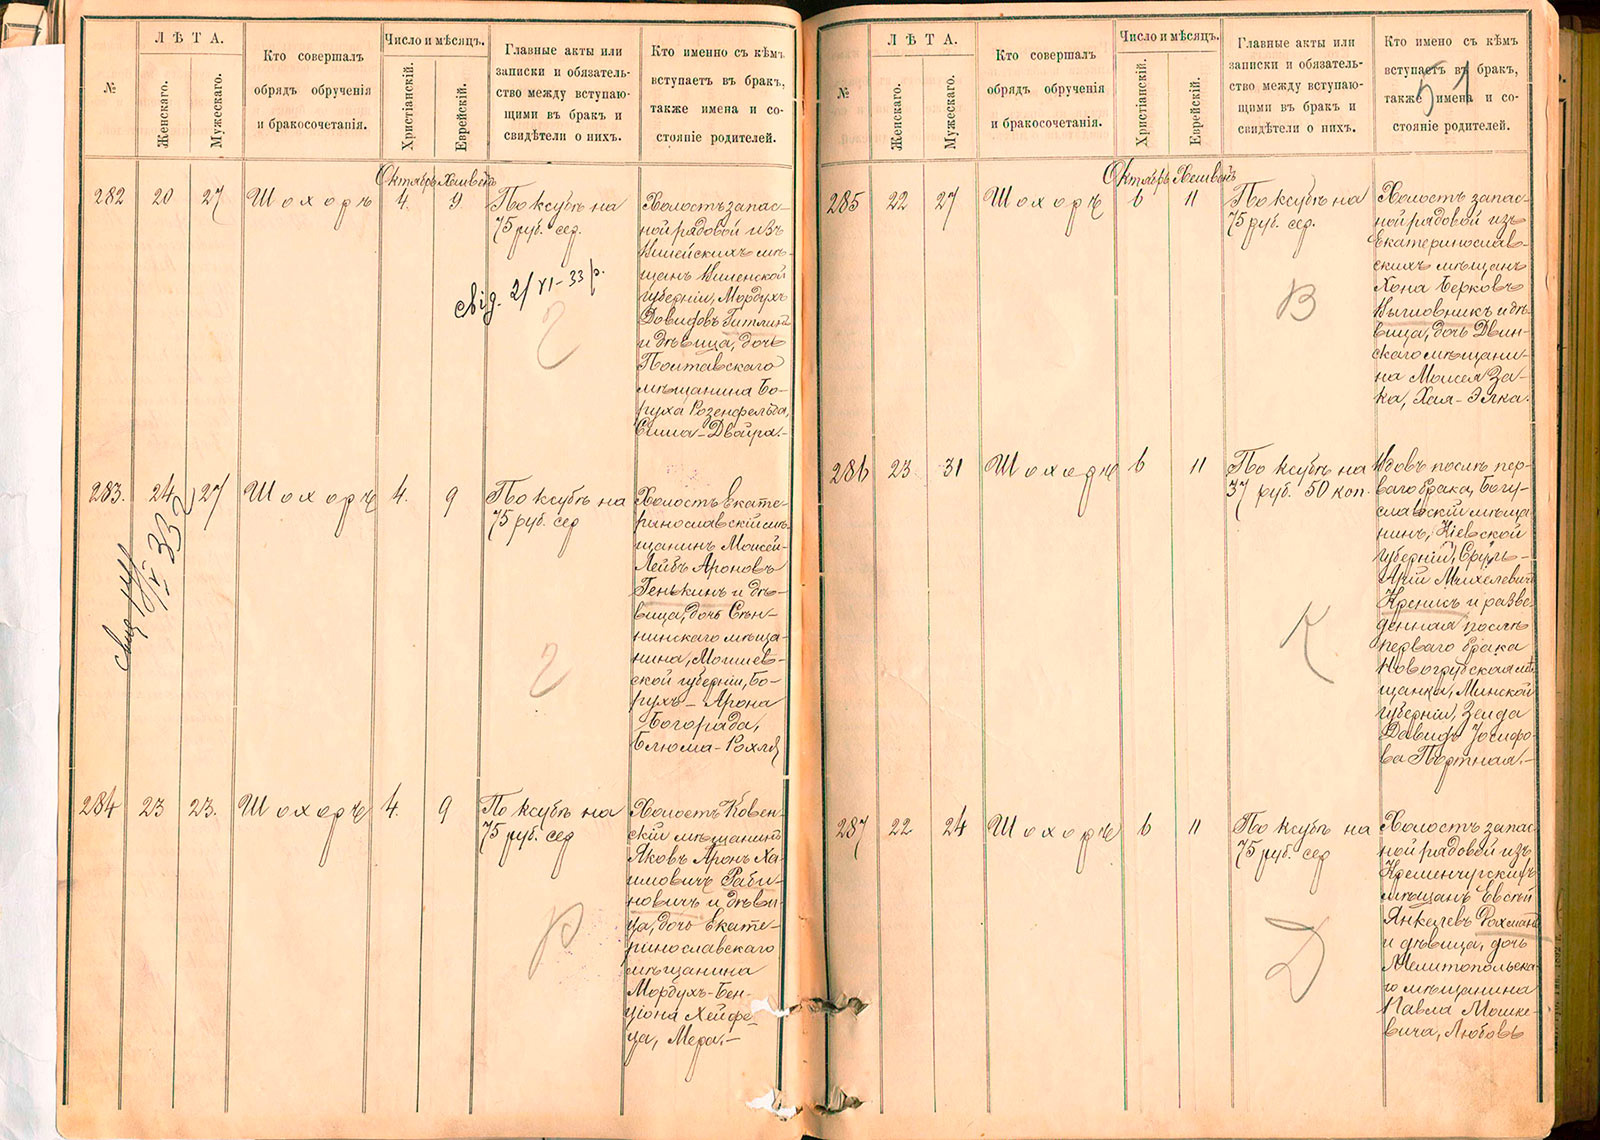 №
ЛѢТА.
Женскаго.
Мужескаго.
Кто совершалъ
обрядъ обрученія
и бракосочетанія.
Число и мѣсяцъ.
Христіанскій.
Еврейскій.
Главные акты или
записки и обязатель-
ство между вступаю-
щими въ бракъ и
свидѣтели о нихъ.
Кто именно съ кѣмъ
вступаетъ въ бракъ,
также имена и со-
стояніе родителей.
Октябрь Хешвонъ
282 20 27 Шохоръ 4. 9
По ксубѣ на
75 руб. сер.
свід. 2/VI-33 р.
Г
Холостъ запас-
ной рядовой изъ
Вилейскихъ мѣ-
щанъ Виленской
губерніи, Мордухъ
Довидовъ Гитлинъ
и дѣвица, дочь
Полтавскаго
мѣщанина Бо-
руха Розенфельда,
Сима-Двойра.-
283. 24 27 Шохоръ 4. 9
По ксубѣ на
75 руб. сер
Г
Холостъ Екате-
ринославскій мѣ-
щанинъ Моисей-
Лейбъ Ароновъ
Генькинъ и дѣ-
вица, дочь Сѣн-
нинскаго мѣща-
нина, Могилев-
ской губерніи, Бо-
рухъ-Арона
Богорада,
Блюма-Рохля
284 23 23. Шохоръ 4. 9
По ксубѣ на
75 руб. сер
Р
Холостъ Ковен-
скій мѣщанинъ
Яковъ Аронъ Ха-
имовичъ Раби-
новичъ и дѣви
ца, дочь Екате-
ринославскаго
мѣщанина
Мордухъ-Бен-
ціона Хейфе-
ца, Мера.-
№
ЛѢТА.
Женскаго.
Мужескаго.
Кто совершалъ
обрядъ обрученія
и бракосочетанія.
Число и мѣсяцъ.
Христіанскій.
Еврейскій.
Главные акты или
записки и обязатель-
ство между вступаю-
щими въ бракъ и
свидѣтели о нихъ.
Кто имено съ кѣмъ
вступаетъ въ бракъ,
также имена и со-
стояніе родителей.
51
Октябрь Хешвонъ
285 22 27 Шохоръ 6 11
По ксубѣ на
75 руб. сер.
В
Холостъ запас-
ной рядовой изъ
Екатеринослав-
скихъ мѣщанъ
Хона Берковъ
Выгловникъ и дѣ-
вица, дочь Двин-
скаго мѣщани-
на Моисея За-
ка, Хая-Элка.
286 23 31 Шохоръ 6 11
По ксубѣ на
37 руб. 50 коп.
К
Вдовъ послѣ пер-
ваго брака, Богу-
славскій мѣща-
нинъ, Кіевской
губерніи, Сруль-
Арій Михелевичъ
Кренисъ и разве-
денная послѣ
перваго брака
Новогрудская мѣ-
щанка, Минской
губерніи, Зелда
Давидъ Іосифо-
ва Портная.-
287 22 24 Шохоръ 6 11
По ксубѣ на
75 руб. сер
Д
Холостъ запас-
ной рядовой изъ
Кременчугскихъ
мѣщанъ Евсей
Янкелевъ Дохманъ
и дѣвица, дочь
Мелитопольска-
го мѣщанина
Павла Мошке-
вича, Любовь